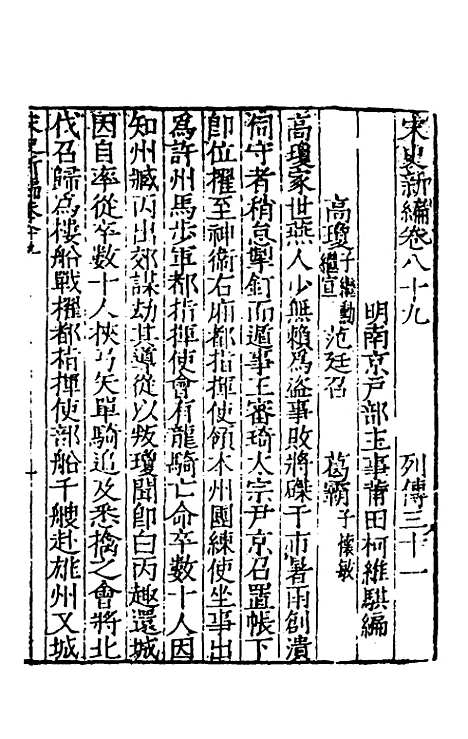 宋史新編卷八十九　列傳三十一
明南京戶部主事莆田柯維騏編
高瓊子繼勳繼宣　范廷召　葛霸子懷敏
高瓊家世燕人少無賴爲盜事敗將磔于市暑雨創潰
伺守者稍怠掣釘而遁事王審琦太宗尹京召置帳下
卽位擢至神衛右廂都指揮使領本州團練使坐事出
爲許州馬步軍都指揮使會有龍騎亡命卒數十人因
知州臧丙出郊謀劫其導從以叛瓊聞卽白丙趣還城
因自率從卒數十人挾弓矢單騎追及悉擒之會將北
伐召歸爲樓船戰擢都指揮使部船千艘赴雄州又城
宋史新編卷八九